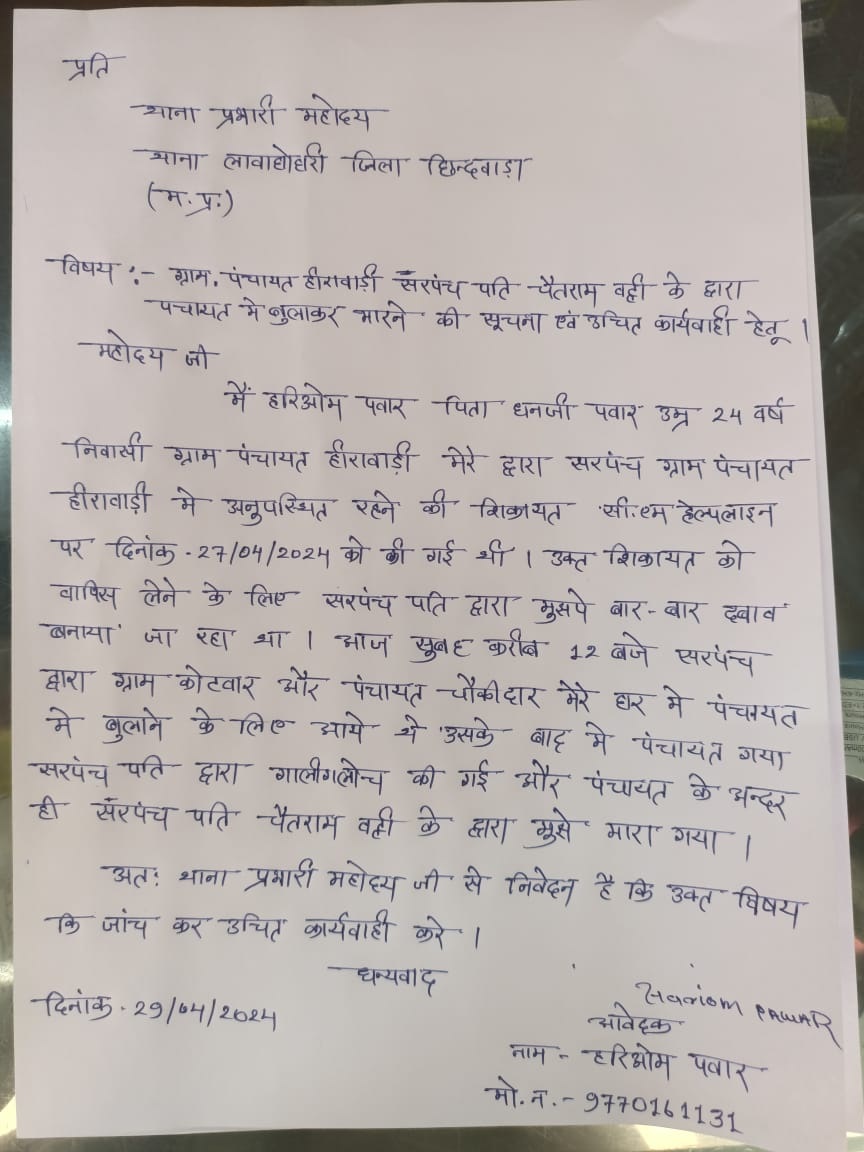 प्रति
थाना प्रभारी महोदय
थाना लावाघोघरी जिला छिन्दवाड़ा
(म.प्र.)
विषय :- ग्राम. पंचायत हीरावाड़ी सरपंच पति चैतराम वट्टी के द्वारा
पंचायत मे बुलाकर मारने की सूचना एवं उचित कार्यवाही हेतू ।
महोदय जी
मैं हरिओम पवार पिता धनजी पवार उम्र 24 वर्ष
निवासी ग्राम पंचायत हीरावाड़ी मेरे द्वारा सरपंच ग्राम पंचायत
हीरावाड़ी मे अनुपस्थित रहने की शिकायत सी.एम हेल्पलाइन
पर दिनांक - 27/04/2024 को की गई थी । उक्त शिकायत को
वापिस लेने के लिए सरपंच पति द्वारा मुझपे बार-बार दबाव
बनाया जा रहा था । आज सुबह करीब 12 बजे सरपंच
द्वारा ग्राम कोटवार और पंचायत चौकीदार मेरे घर मे पंचायत
मे बुलाने के लिए आये थे उसके बाद मे पंचायत गया
सरपंच पति द्वारा गालीगलोच की गई और पंचायत के अन्दर
ही सरपंच पति चैतराम वट्टी के द्वारा मुझे मारा गया ।
अतः थाना प्रभारी महोदय जी से निवेदन है कि उक्त विषय
कि जांच कर उचित कार्यवाही करे ।
धन्यवाद
दिनांक - 29/04/2024
Hariom PAWAR
आवेदक
नाम - हरिओम पवार
मो. न. - 9770161131